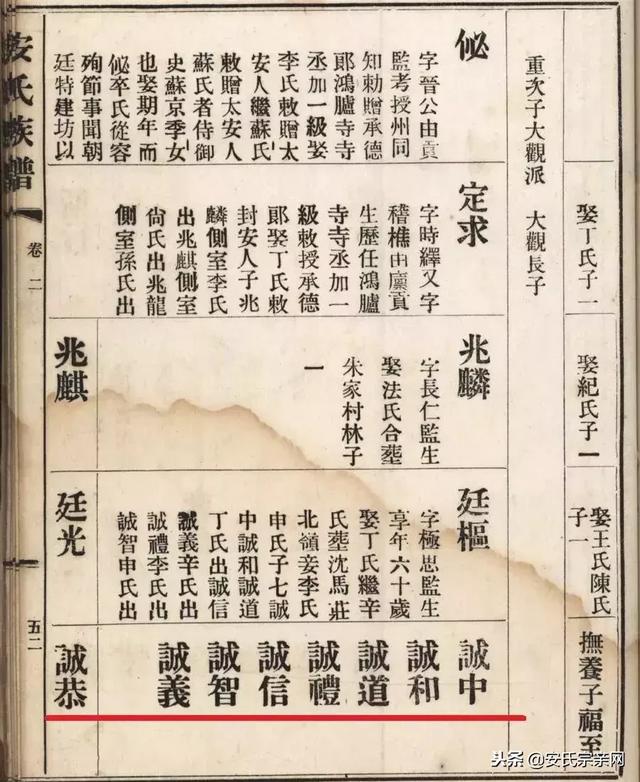 娶丁氏子一
娶紀氏子一
娶王氏陳氏
子一
撫養子福至
重次子大觀派 大觀長子
佖
字晉公由貢
監考授州同
知勅贈承德
郎鴻臚寺寺
丞加一級娶
李氏敕贈太
安人繼蘇氏
敕贈太安人
蘇氏者侍御
史蘇京季女
也娶期年而
佖卒氏從容
殉節事聞朝
廷特建坊以
定求
字時繹又字
稽樵由廩貢
生歷任鴻臚
寺寺丞加一
級敕授承德
郎娶丁氏敕
封安人子兆
麟側室李氏
出兆麒側室
尙氏出兆龍
側室孫氏出
兆麟
字長仁監生
娶法氏合葬
朱家村林子
一
兆麒
廷樞
字極思監生
享年六十歲
娶丁氏繼辛
氏葬沈馬莊
北嶺妾李氏
申氏子七誠
中誠和誠道
丁氏出誠信
誠義辛氏出
誠禮李氏出
誠智申氏出
廷光
誠中
誠和
誠道
誠禮
誠信
誠智
誠義
誠恭
安氏族譜
卷二
五二
头条 @安氏宗亲网